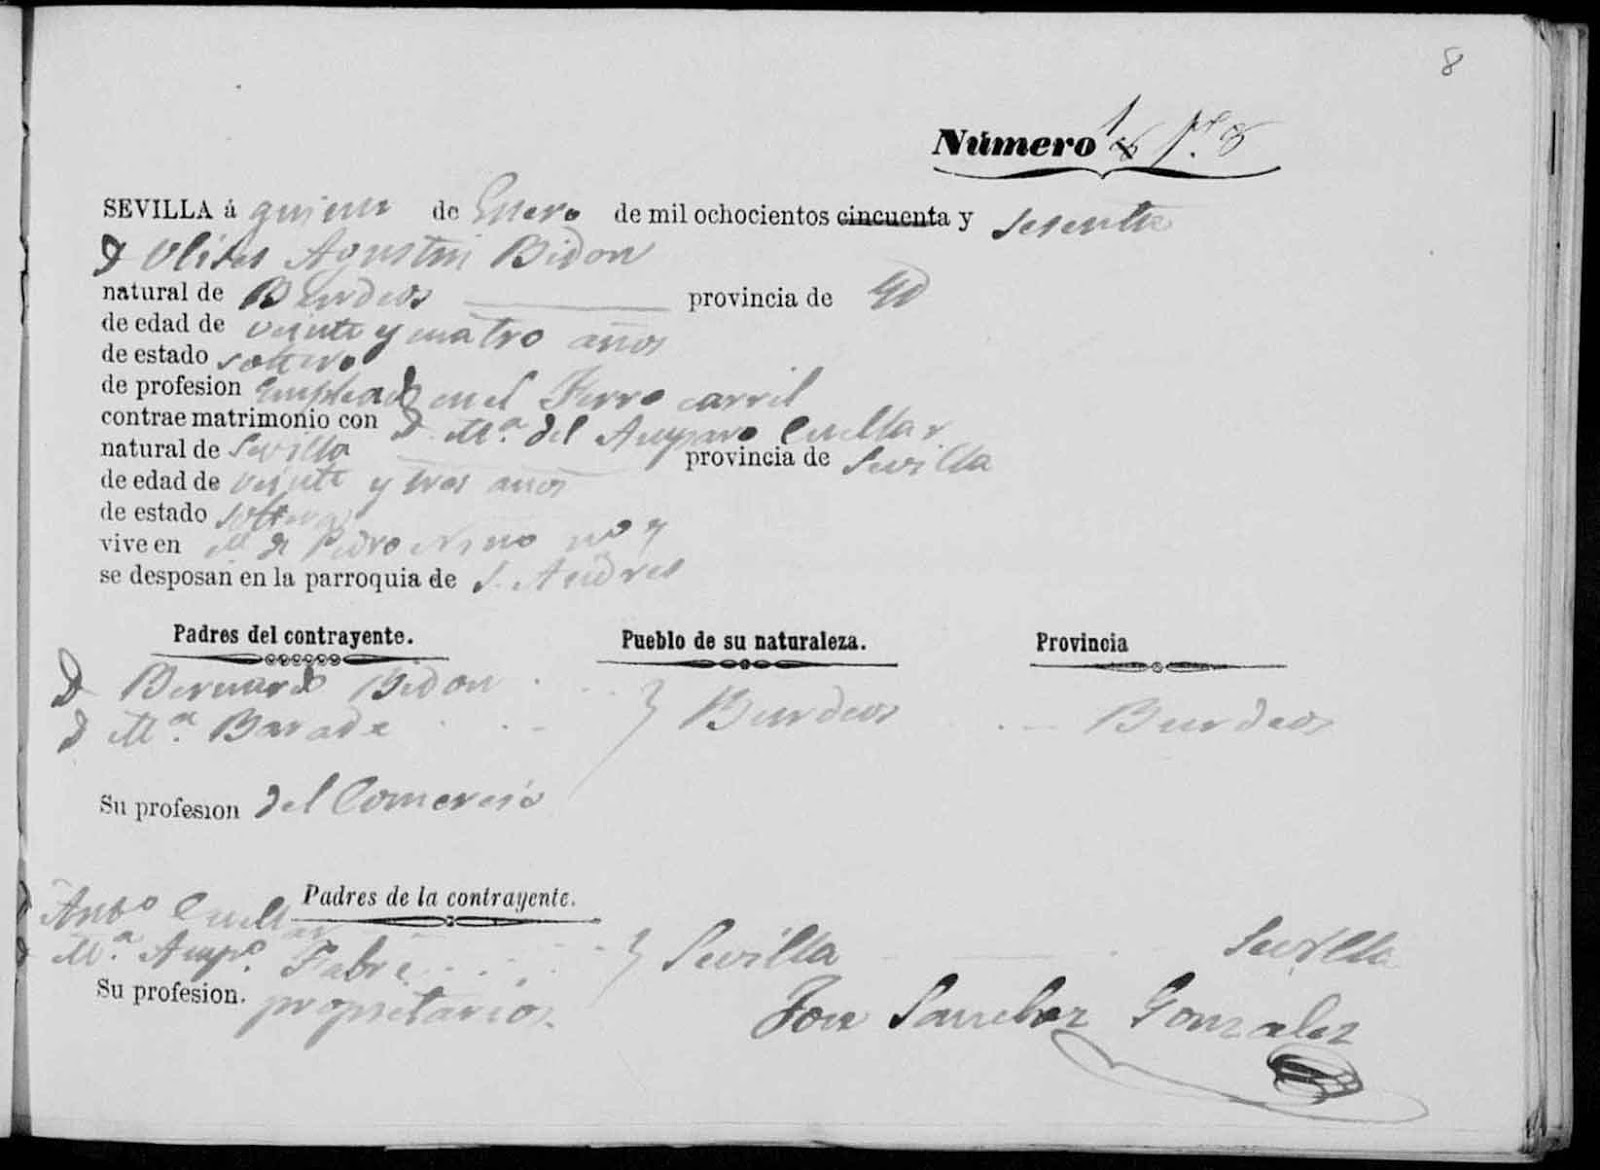 8
Número 1
SEVILLA á quince de Enero de mil ochocientos cincuenta y sesenta
D Ulises Agustin Bidon
natural de Burdeos provincia de id
de edad de veinte y cuatro años
de estado soltero
de profesion empleado en el Ferro carril
contrae matrimonio con D. Mª. del Amparo Cuellar
natural de Sevilla provincia de Sevilla
de edad de veinte y tres años
de estado soltera
vive en de Pedro Niño nº 7
se desposan en la parroquia de S. Andres
Padres del contrayente. Pueblo de su naturaleza. Provincia
D Bernardo Bidon
D Mª. Barade } Burdeos Burdeos
Su profesion del Comercio
Padres de la contrayente.
D Antº Cuellar
D Mª Ampº. Fabre } Sevilla Sevilla
Su profesion. propietarios.
Jose Sanchez Gonzalez